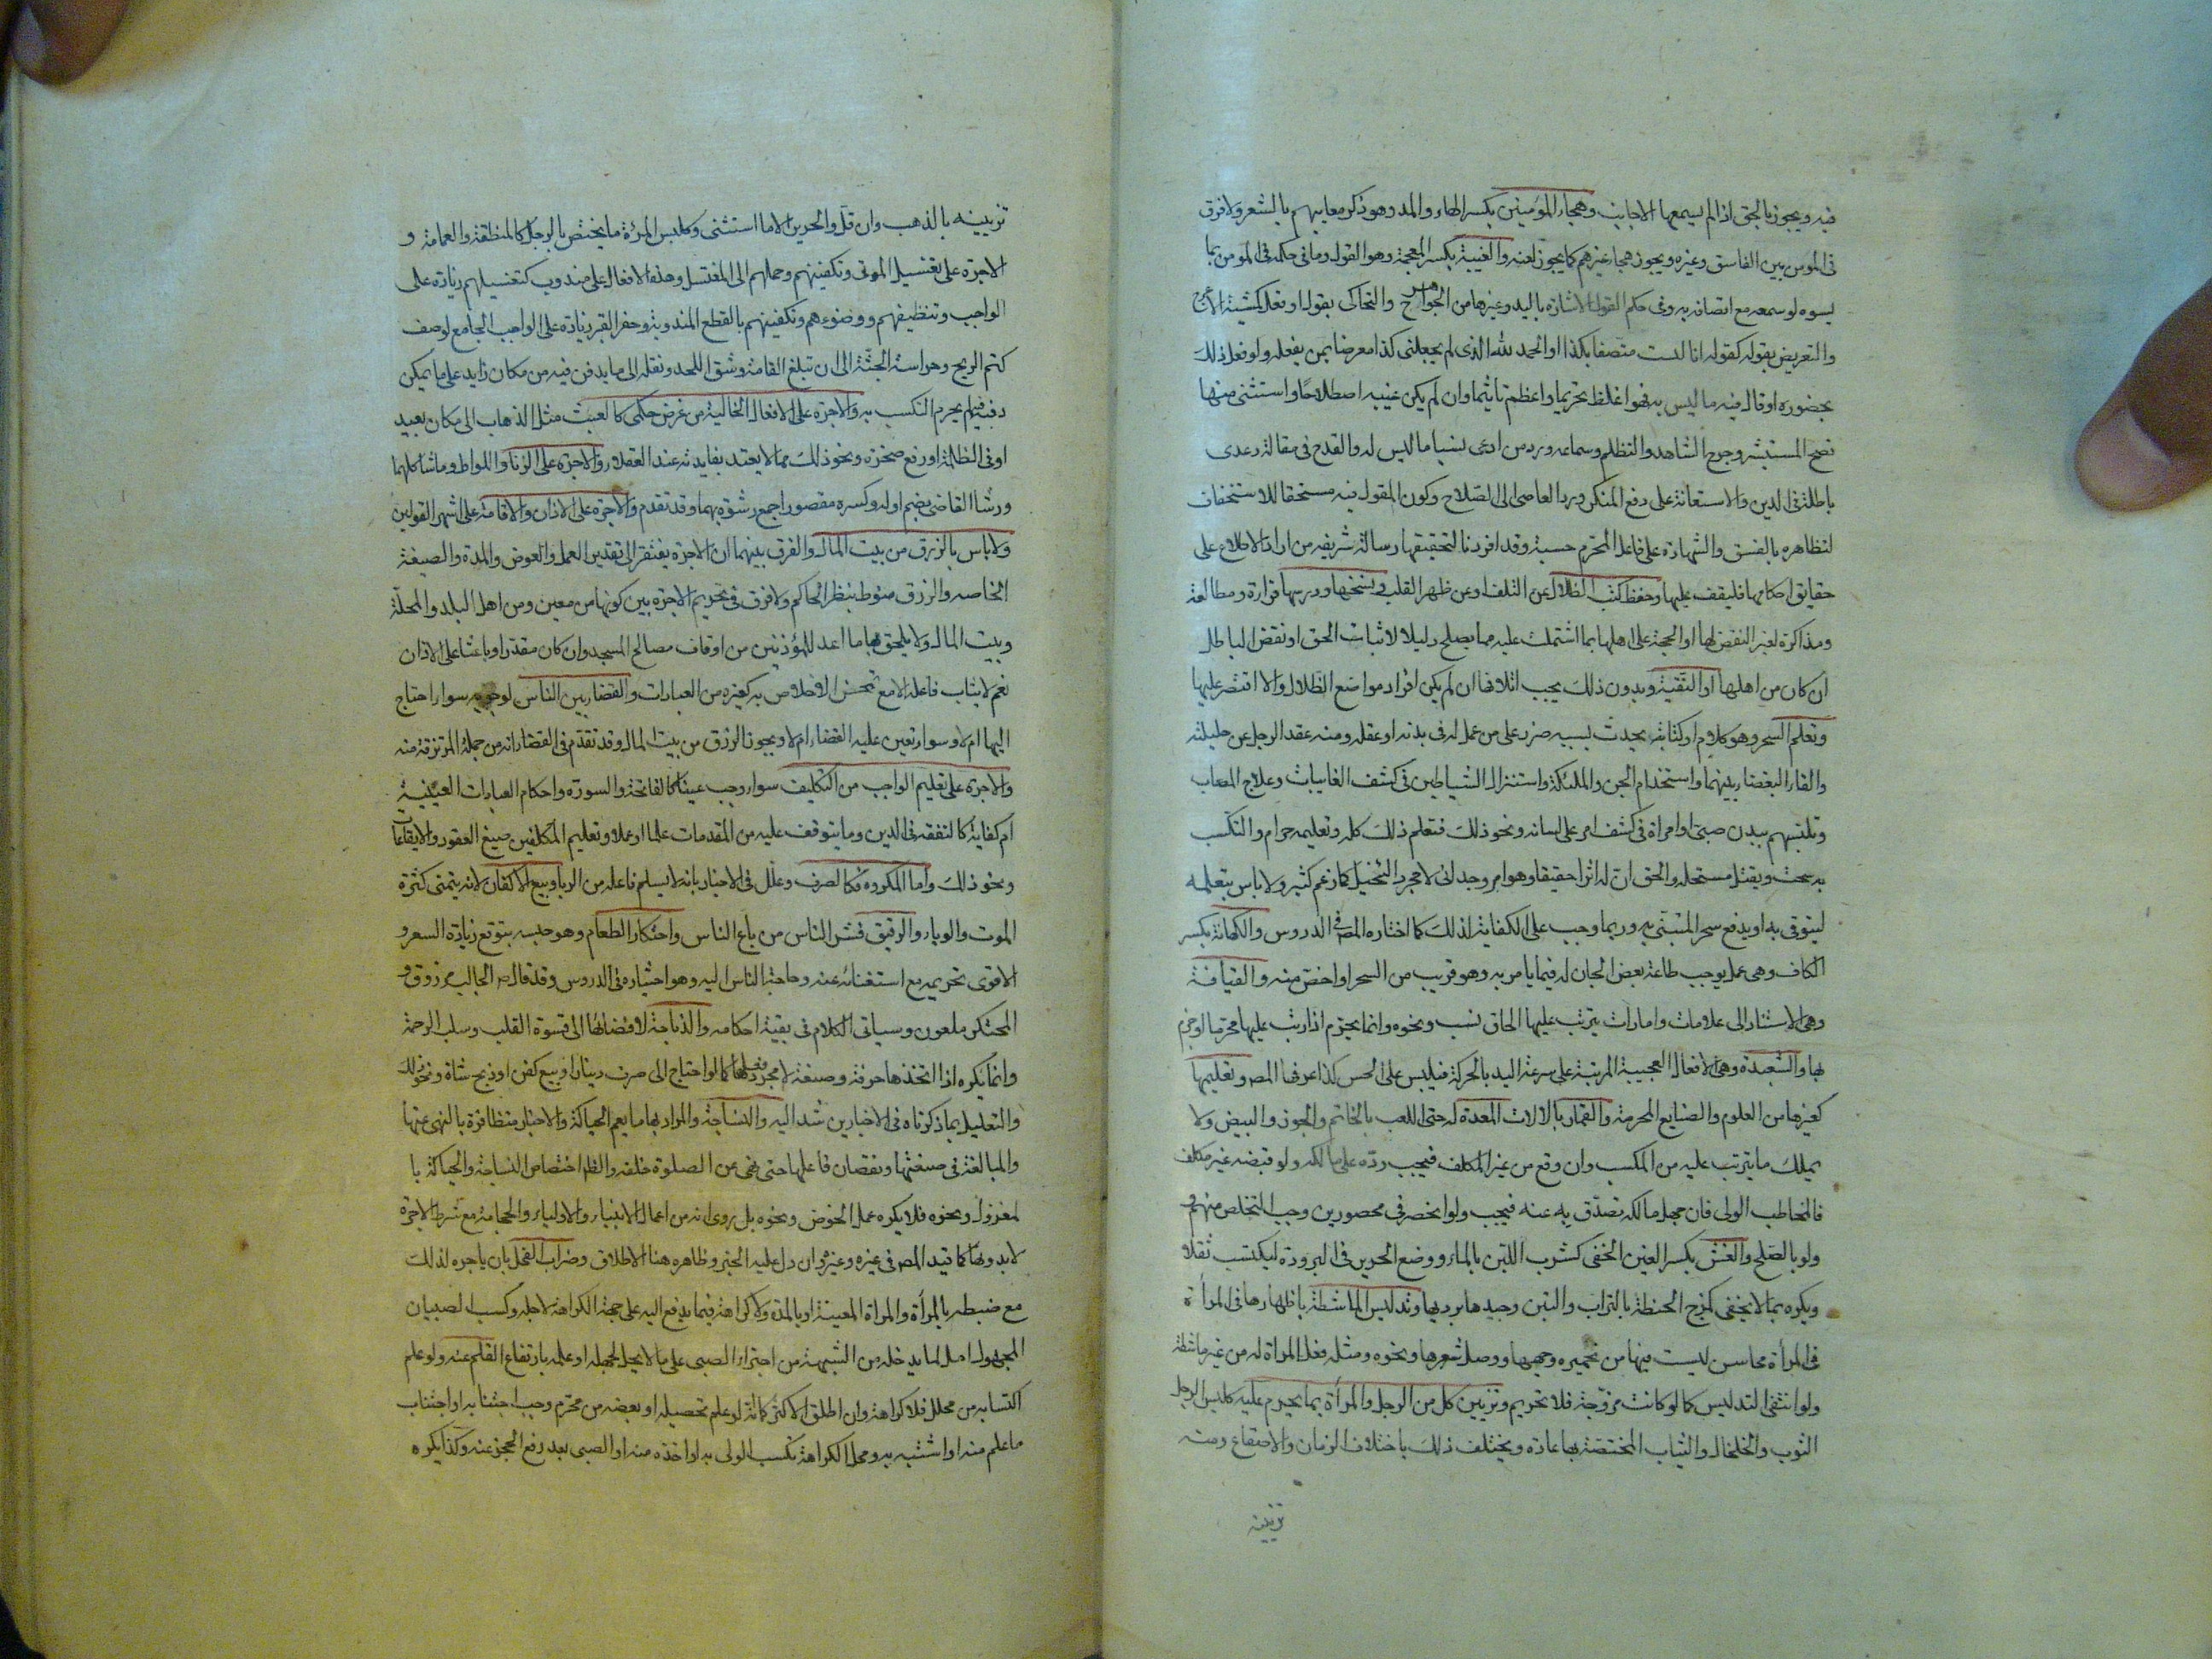 فيه ويجوز بالحق اذا لم يسمعها الاجانب وهجاء المؤمنين بكسر الهاء والمد وهو ذكر معايبهم بالشعر ولا فرق
في المؤمن بين الفاسق وغيره ويجوز هجاء غيرهم كما يجوز لعنه والغيبة بكسر المعجمة وهو القول وما في حكمه في المؤمن بما
يسوءه لو سمعه مع اتصافه به وفي حكم القول الاشارة باليد وغيرها من الجوارح والتحاكي بقول او فعل كمشية الاعرج
والتعريض بقوله كقوله انا لست متصفا بكذا او الحمد لله الذي لم يجعلني كذا معرضا بمن يفعله ولو فعل ذلك
بحضوره او قال فيه ما ليس به فهو اغلظ تحريما واعظم تأثيما وان لم يكن غيبة اصطلاحا واستثني منها
نصح المستشير وجرح الشاهد والتظلم وسماعه ورد من ادعى نسبا ما ليس له والقدح في مقالة ودعوى
باطلة في الدين والاستعانة على دفع المنكر ورد العاصي الى الصلاح وكون المقول فيه مستحقا للاستخفاف
لتظاهره بالفسق والشهادة على فاعل المحرم حسبة وقد افردنا لتحقيقها رسالة شريفة من اراد الاطلاع على
حقايق احكامها فليقف عليها وحفظ كتب الضلال عن التلف او عن ظهر القلب ونسخها ودرسها قراءة ومطالعة
ومذاكرة لغير النقض لها او الحجة على اهلها بما اشتملت عليه مما يصلح دليلا لاثبات الحق او نقض الباطل
ان كان من اهلها او التقية وبدون ذلك يجب اتلافها ان لم يكن افراد مواضع الضلال والا اقتصر عليها
وتعلم السحر وهو كلام او كتابة يحدث بسببه ضرر على من عمل له في بدنه او عقله ومنه عقد الرجل عن حليلته
والقاء البغضاء بينهما واستخدام الجن والملئكة واستنزال الشياطين في كشف الغايبات وعلاج المصاب
وتلبسهم ببدن صبي او امراة في كشف امر على لسانه ونحو ذلك فتعلم ذلك كله وتعليمه حرام والتكسب
به سحت ويقتل مستحله والحق ان له اثرا حقيقا وهو امر وجداني لا مجرد التخييل كما زعم كثير ولا باس بتعلمه
ليتوقى به او يدفع سحر المتنبي به وربما وجب على الكفاية لذلك كما اختاره المص في الدروس والكهانة بكسر
الكاف وهي عمل يوجب طاعة بعض الجان له فيما يامر به وهو قريب من السحر او اخص منه والقيافة
وهي الاستناد الى علامات وامارات يترتب عليها الحاق نسب ونحوه وانما يحرم اذا رتب عليها محرما او جزم
بها والشعبدة وهي الافعال العجيبة المرتبة على سرعة اليد بالحركة فيلبس على الحس كذا عرفها المص وتعليمها
كغيرها من العلوم والصنايع المحرمة والقمار بالالات المعدة له حتى اللعب بالخاتم والجوز والبيض ولا
يملك ما يترتب عليه من المكسب وان وقع من غير المكلف فيجب رده على مالكه ولو قبضه غير مكلف
فالمخاطب الولي فان جهل مالكه تصدق به عنه فيجب ولو انحصر في محصورين وجب التخلص منهم و
ولو بالصلح والغش بكسر الغين الخفي كشرب اللبن بالماء ووضع الحرير في البرودة ليكتسب ثقلا
ويكره بما لا يخفى كمزج الحنطة بالتراب والتبن وجيدها برديها وتدليس الماشطة باظهارها في المرأة
في المرأة محاسن ليست فيها من تحمير وجهها ووصل شعرها ونحوه ومثله فعل المراة له من غير ماشطة
ولو انتفى التدليس كما لو كانت مزوجة فلا تحريم وتزيين كل من الرجل والمرأة بما يحرم عليه كلبس الرجل
الثوب والخلخال والثياب المختصة بها عادة ويختلف ذلك باختلاف الزمان والاصقاع ومنه
تزيينه
تزيينه بالذهب وان قل والحرير الا ما استثني وكلبس المرئة ما يختص بالرجل كالمنطقة والعمامة و
الاجرة على تغسيل الموتى وتكفينهم وحملهم الى المغتسل وهذه الافعال على مندوب كتغسيلهم زيادة على
الواجب وتنظيفهم ووضوءهم وتكفينهم بالقطع المندوبة وحفر القبر زيادة على الواجب الجامع لوصف
كتم الريح وحراسة الجثة الى ان تبلغ القامة وشق اللحد ونقله الى ما يدفن فيه من مكان زايد على ما يمكن
دفنه فيه لم يحرم التكسب به والاجرة على الافعال الخالية من غرض حكمي كالعبث مثل الذهاب الى مكان بعيد
او في الظلمة او رفع صخرة ونحو ذلك مما لا يعتد بفايدته عند العقلاء والاجرة على الزنا واللواط وما شاكلهما
ورشا القاضي بضم اوله وكسره مقصورا جمع رشوة بهما وقد تقدم والاجرة على الاذان والاقامة على اشهر القولين
ولا باس بالرزق من بيت المال والفرق بينهما ان الاجرة يفتقر الى تقدير العمل والعوض والمدة والصيغة
الخاصه والرزق منوط بنظر الحاكم ولا فرق في تحريم الاجرة بين كونها من معين ومن اهل البلد والمحلة
وبيت المال ولا يلحق بها ما اعد للمؤذنين من اوقاف مصالح المسجد وان كان مقدرا وباعثا على الاذان
نعم لا يثاب فاعله الا مع تمحض الاخلاص به كغيره من العبادات والقضاء بين الناس لوجوبه سواء احتاج
اليها ام لا وسواء تعين عليه القضاء ام لا ويجوز الرزق من بيت المال وقد تقدم في القضاء انه من جملة المرتزقة منه
والاجرة على تعليم الواجب من التكليف سواء وجب عينا كالفاتحة والسورة واحكام العبادات العينية
ام كفاية كالتفقه في الدين وما يتوقف عليه من المقدمات علما او عملا وتعليم المكلفين صيغ العقود والايقاعات
ونحو ذلك واما المكروه فكالصرف وعلل في الاخبار بانه لا يسلم فاعله من الربا وبيع الاكفان لانه يتمنى كثرة
الموت والوباء والرقيق فشر الناس من باع الناس واحتكار الطعام وهو حبسه بتوقع زيادة السعر و
الاقوى تحريمه مع استغنائه عنه وحاجة الناس اليه وهو اختياره في الدروس وقد قال ص الجالب مرزوق و
المحتكر ملعون وسياتي الكلام في بقية احكامه والذباحة لافضائها الى قسوة القلب وسلب الرحمة
وانما يكره اذا اتخذها حرفة وصنعة لا مجرد فعلها كما لو احتاج الى صرف دينار او بيع كفن او ذبح شاة ونحو ذلك
والتعليل بما ذكرناه في الاخبار يرشد اليه والنساجة والمراد بها ما يعم الحياكة والاخبار متظافرة بالنهي عنها
والمبالغة في صنعتها ونقصان فاعلها حتى نهى عن الصلوة خلفه والظ اختصاص النساجة والحياكة با
لمغزول ونحوه فلا يكره عمل الخوص ونحوه بل روى انه من اعمال الانبياء والاولياء والحجامة مع شرط الاجرة
لا بدونها كما قيده المص في غيره وغيره وان دل عليه الخبر وظاهره هنا الاطلاق وضراب الفحل بان ياجره لذلك
مع ضبطه بالمرأة والمراة المعينة او بالمدة ولا كراهة فيما يدفع اليه على جهة الكراهة لاجله وكسب الصبيان
المجهول اصله لما يدخله من الشبهة من اجتراء الصبي على ما لا يحل لجهله او علمه بارتفاع القلم عنه ولو علم
اكتسابه من محلل فلا كراهة وان اطلق الاكثر كما انه لو علم تحصيله او بعضه من محرم وجب اجتنابه او اجتناب
ما علم منه او اشتبه به ومحل الكراهة تكسب الولي به او اخذه منه او الصبي بعد رفع الحجر عنه وكذا يكره